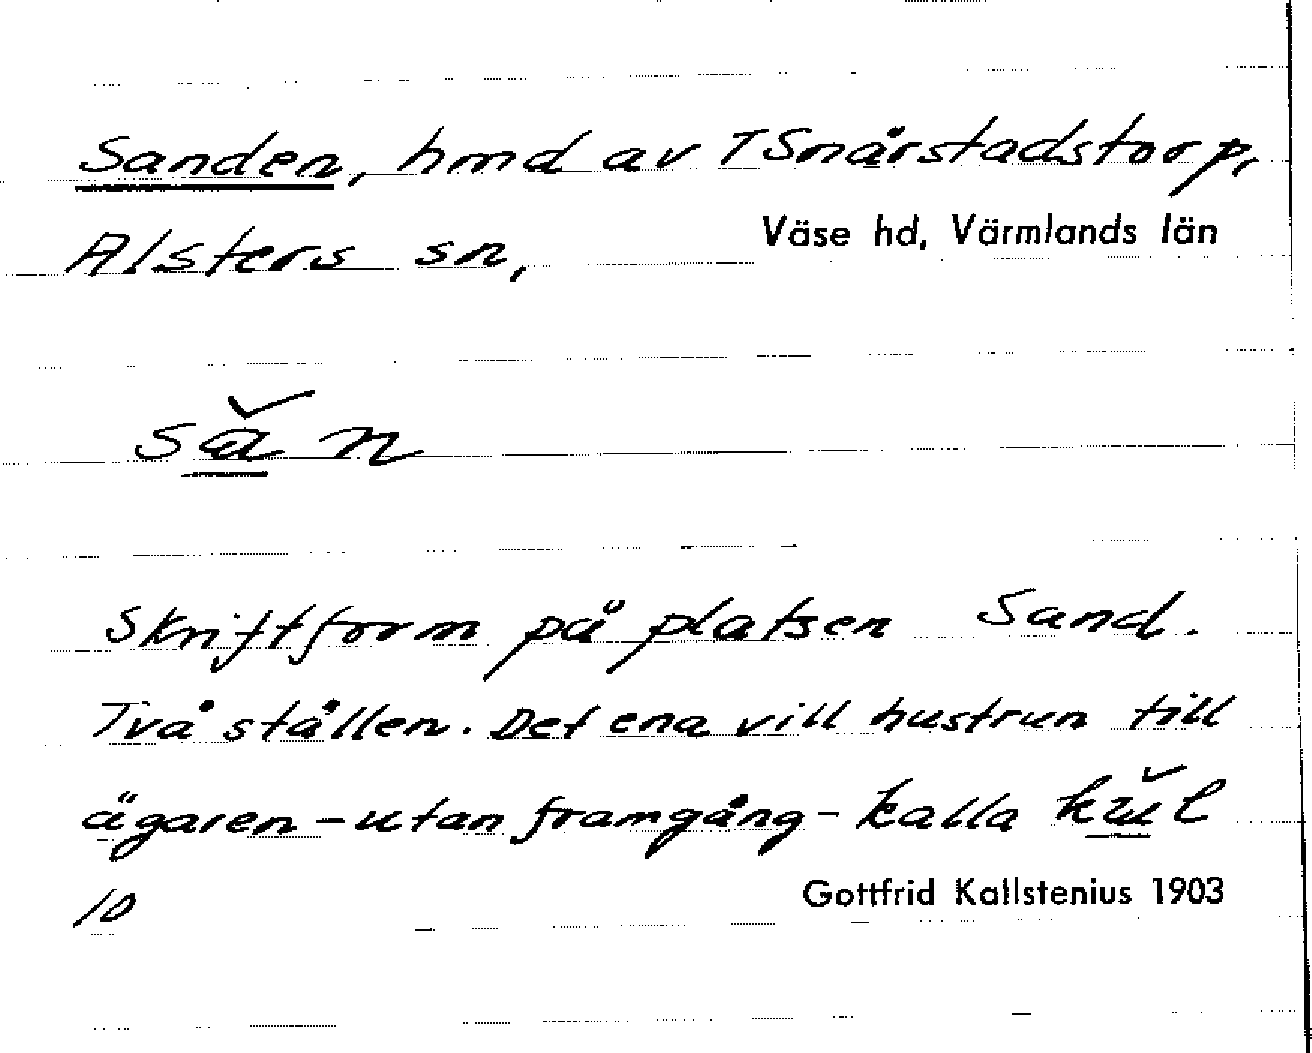 Sanden, hmd av TSnårstadstorp,
Alsters sn, Väse hd, Värmlands län
sǎ̲n
Skriftform på platsen Sand.
Två ställen. Det ena vill hustrun till
ägaren - utan framgång - kalla
10 Gottfrid Kallstenius 1903